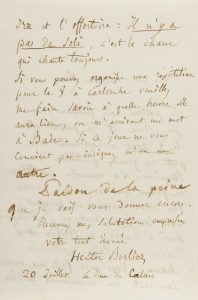 irae et l'offertoire : Il n'y a
pas de Soli c'est le chœur
qui chante toujours.
Si vous pouvez organiser une répétition
pour le 8 à Carlsruhe veuillez
me faire savoir à quelle heure elle
aura lieu, en m'écrivant un mot
à Bade. Si ce jour ne vous
convient pas indiquez m'en un
autre.
Pardon de la peine
que je vais vous donner encore.
Recevez mes salutations empressées
votre tout dévoué
Hector Berlioz
20 Juillet. 4 Rue de Calais